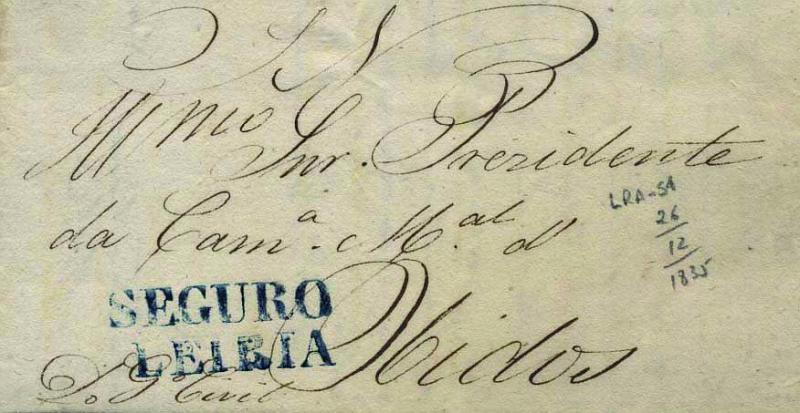 S N
Illmo Snr. Prezidente
da Cama. Mal d'
Obidos
SEGURO
LEIRIA
Do G. Civil
LRA-S1
26
12
1835